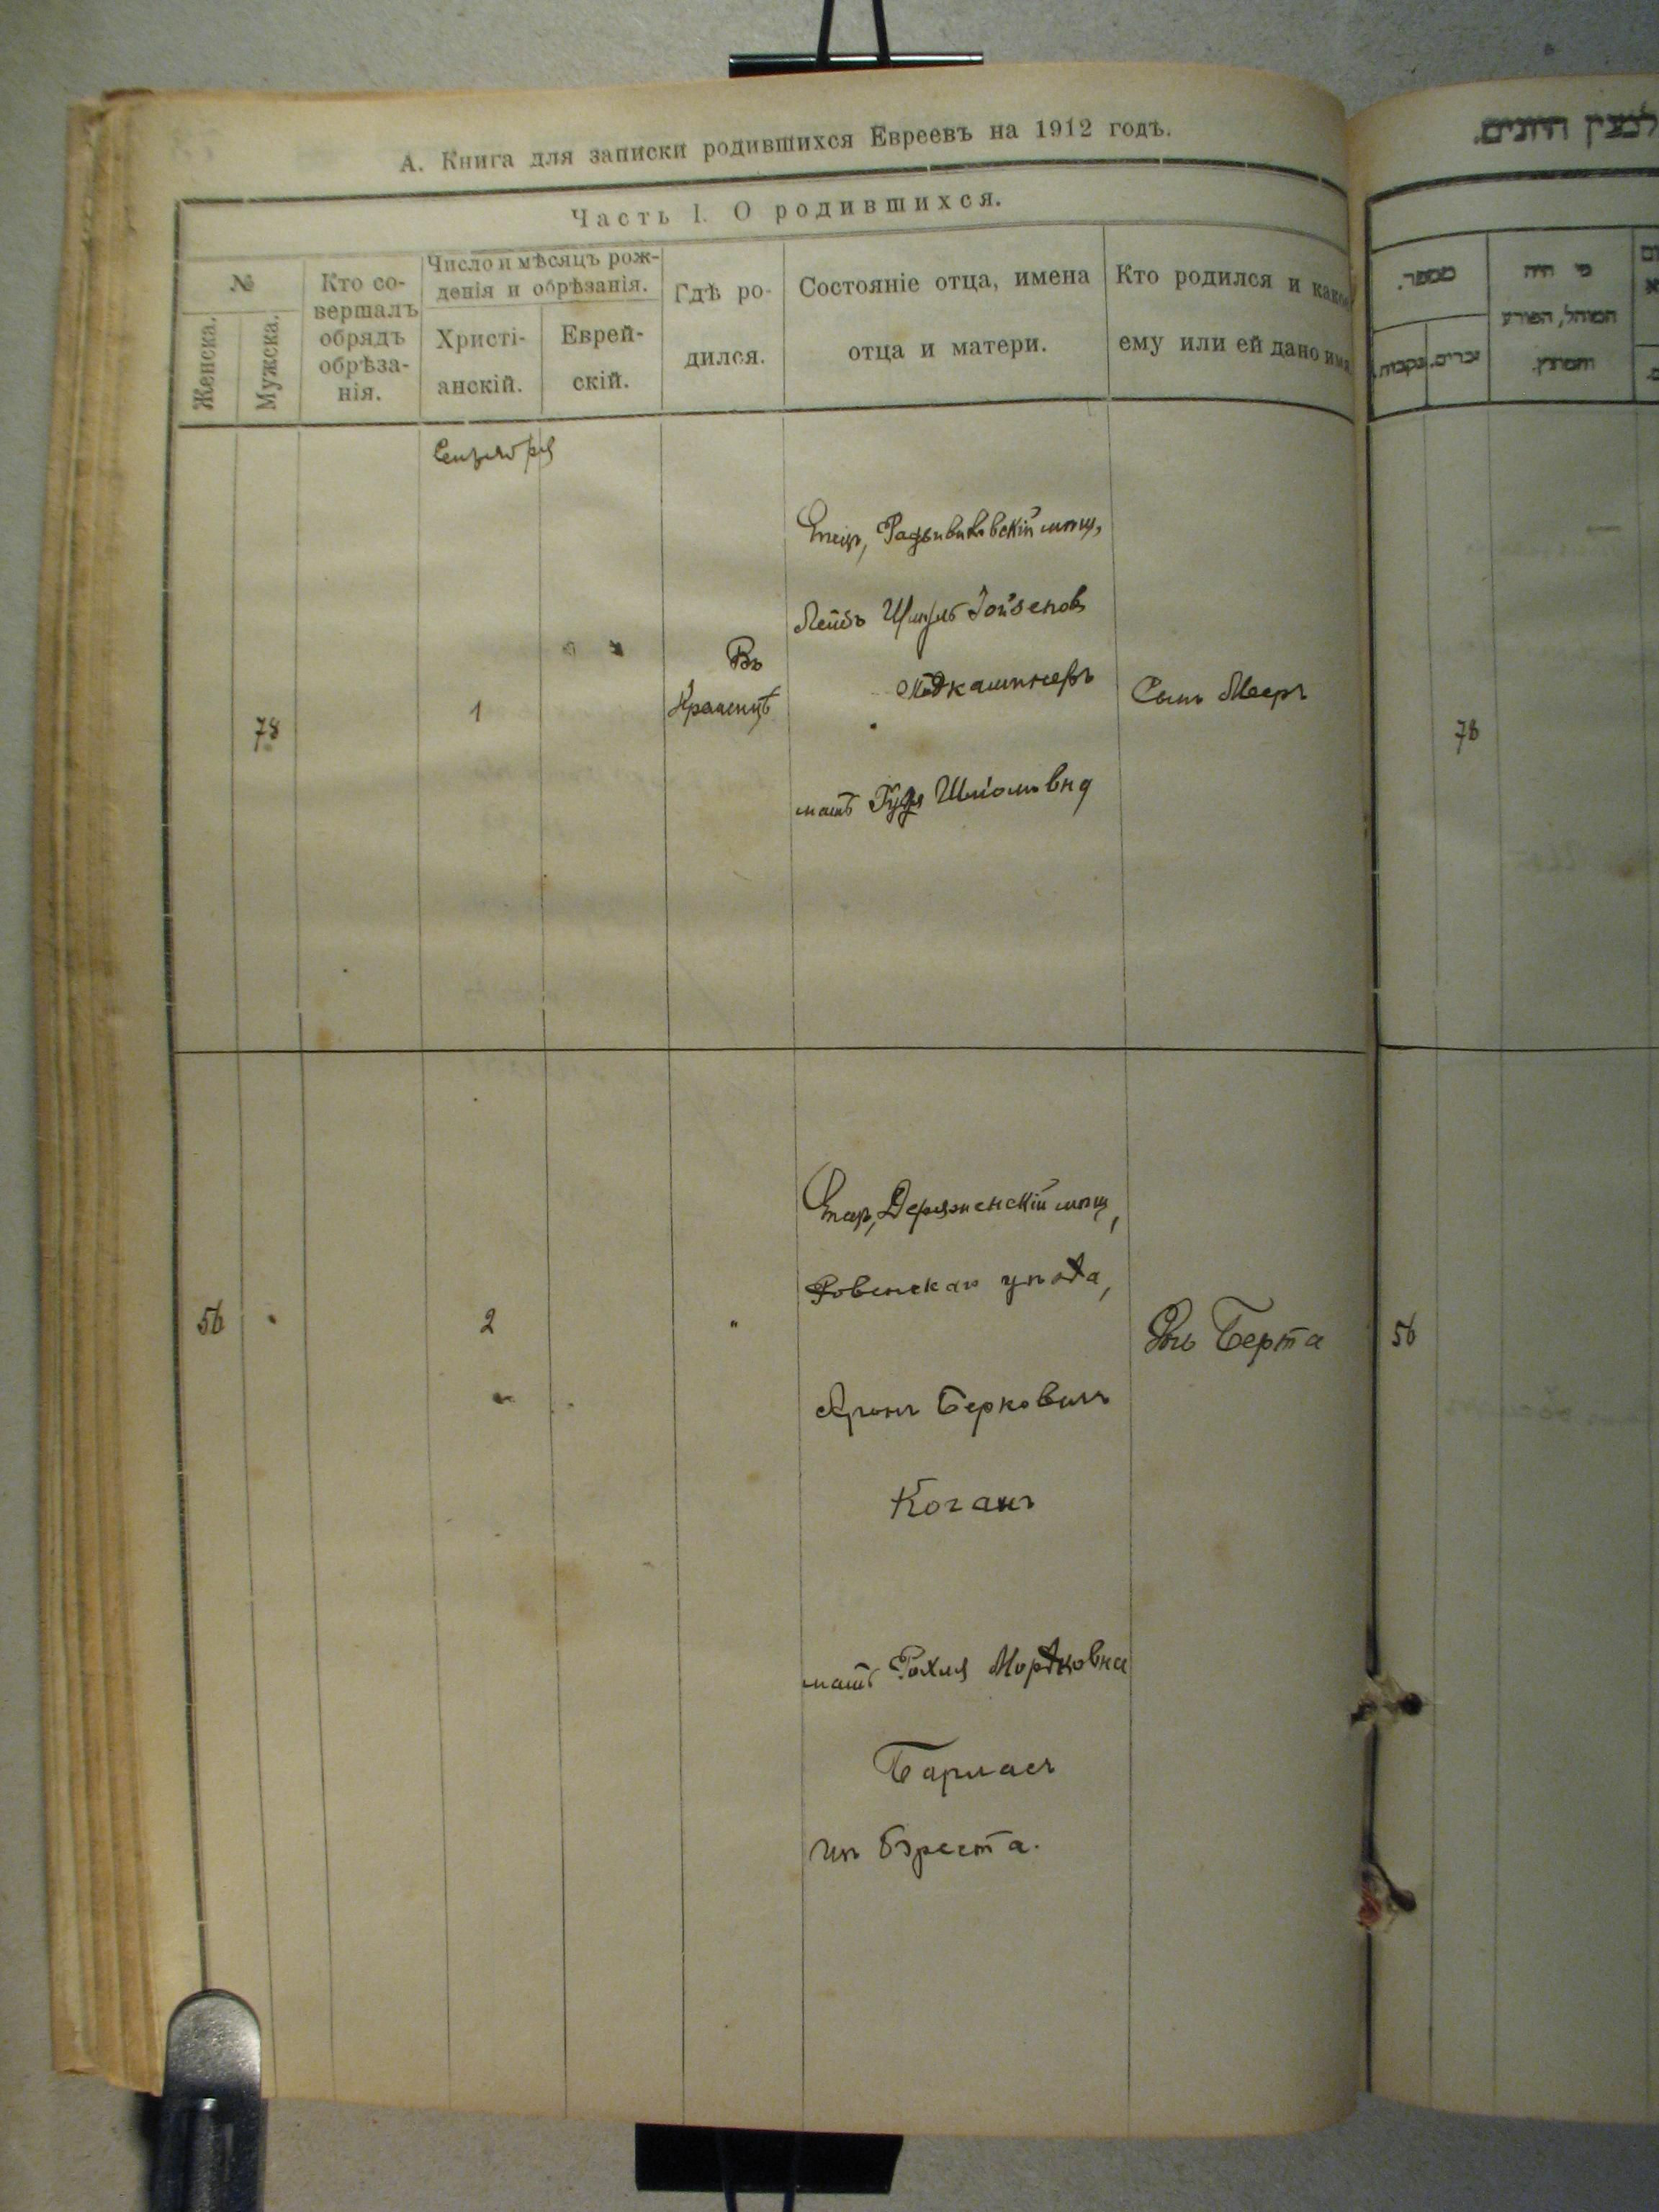 А. Книга для записки родившихся Евреевъ на 1912 годъ.
Часть I. О родившихся.
№
Женска.
Мужска.
Кто со-
вершалъ
обрядъ
обрѣза-
нія.
Число и мѣсяцъ рож-
денія и обрѣзанія.
Христі-
анскій.
Еврей-
скій.
Гдѣ ро-
дился.
Состояніе отца, имена
отца и матери.
Кто родился и какое
ему или ей дано имя
Сентября
78
1
Въ
Кременцѣ
мѣщ,
Лейбъ
мать Шліомовна
Сынъ Мееръ
56
2
"
Отецъ, Деражненскій мѣщ,
Ровенскаго уѣзда,
Аронъ Берковичъ
Коганъ
мать Рахля Мордковна
Бармасъ
изъ Бреста.
Дочь Берта
מספר.
זכרים.
נקבות.
מי היה
המוהל, הפורע
והמוצץ.
78
56